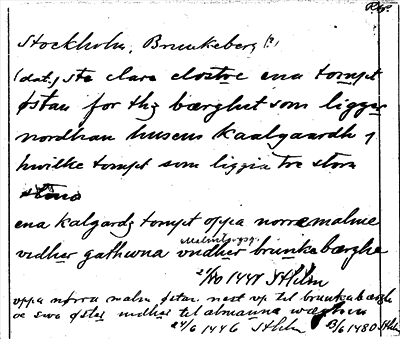 Reg.
Stockholm, Brunkeberg (?)
(dat.) s̄te clare clostre ena tompt
østan for thz bærghet som ligger
nordhan husens kaalgaardh j
hwilke tompt som liggia tre stora
stena
ena kalgardz tompt oppa norra malme
Malmtorgsg.
vidher gathwna vndher brunkebærghe
21/10 1447 SHlm
oppa nørra malm østan nest vp til brunkebærgh
oc swa østan nidher til almanna wæghin
24/6 1446 SHlm 13/6 1480 SHlm